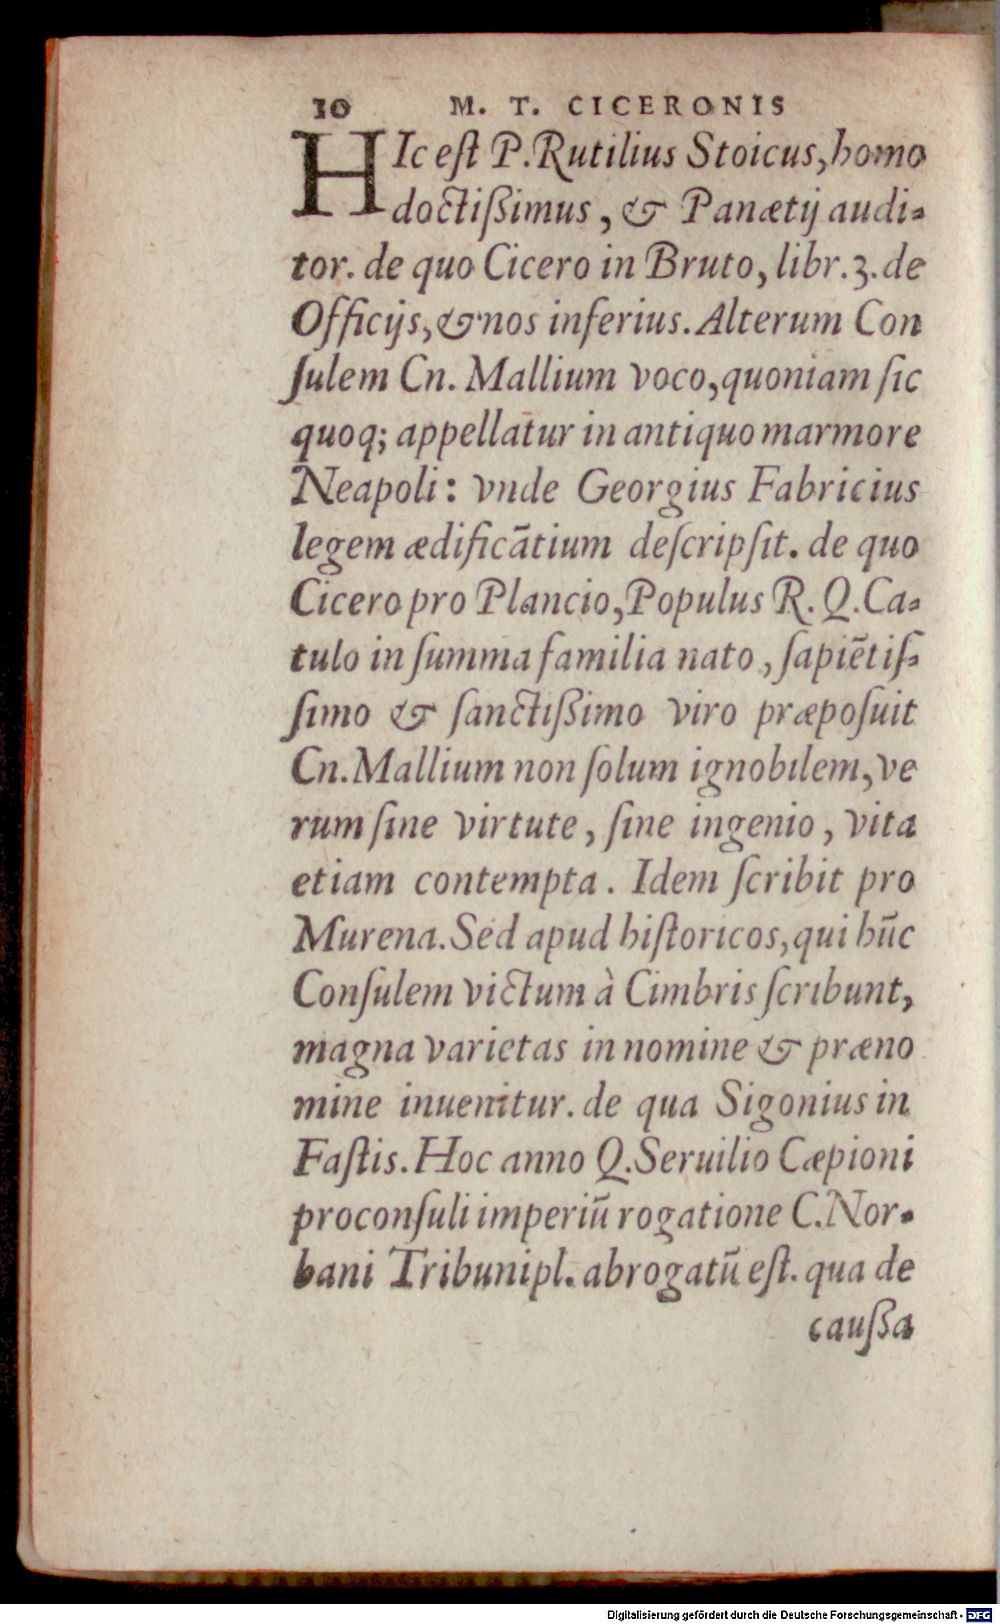 10 M. T. CICERONIS
HIc eſt P. Rutilius Stoicus, homo
doctiſsimus, & Panætij audi-
tor. de quo Cicero in Bruto, libr. 3. de
Officijs, & nos inferius. Alterum Con
ſulem Cn. Mallium voco, quoniam ſic
quoq; appellatur in antiquo marmore
Neapoli: vnde Georgius Fabricius
legem ædificātium deſcripſit. de quo
Cicero pro Plancio, Populus R. Q. Ca-
tulo in ſumma familia nato, ſapiētiſ-
ſimo & ſanctiſsimo viro præpoſuit
Cn. Mallium non ſolum ignobilem, ve
rum ſine virtute, ſine ingenio, vita
etiam contempta. Idem ſcribit pro
Murena. Sed apud hiſtoricos, qui hūc
Conſulem victum à Cimbris ſcribunt,
magna varietas in nomine & præno
mine inuenitur. de qua Sigonius in
Faſtis. Hoc anno Q. Seruilio Cæpioni
proconſuli imperiū rogatione C. Nor-
bani Tribuni pl. abrogatū eſt. qua de
cauſsa
Digitalisierung gefördert durch die Deutsche Forschungsgemeinschaft - DFG